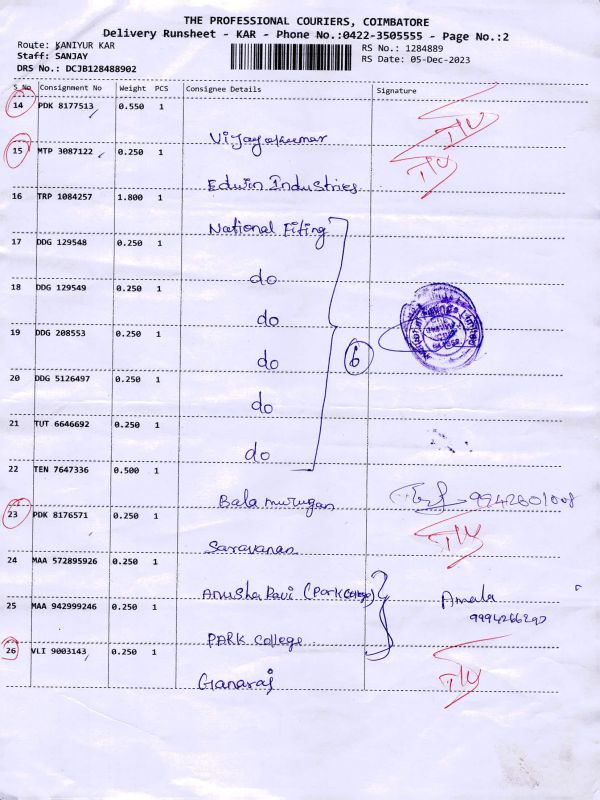 THE PROFESSIONAL COURIERS, COIMBATORE
Delivery Runsheet - KAR - Phone No.:0422-3505555 - Page No.:2
Route: KANIYUR KAR
RS No.: 1284889
Staff: SANJAY
RS Date: 05-Dec-2023
DRS No.: DCJB128488902
S No Consignment No Weight PCS Consignee Details Signature
14 PDK 8177513 0.550 1
Vijayakumar
15 MTP 3087122 0.250 1
Edwin Industries
16 TRP 1084257 1.800 1
National Fiting
17 DDG 129548 0.250 1
do
18 DDG 129549 0.250 1
do
19 DDG 208553 0.250 1
do
6
20 DDG 5126497 0.250 1
do
21 TUT 6646692 0.250 1
do
22 TEN 7647336 0.500 1
Balamurugan
23 PDK 8176571 0.250 1
Saravanan
24 MAA 572895926 0.250 1
Anusha Ravi (Park College)
Amala
25 MAA 942999246 0.250 1
PARK College
26 VLI 9003143 0.250 1
Ganaraj